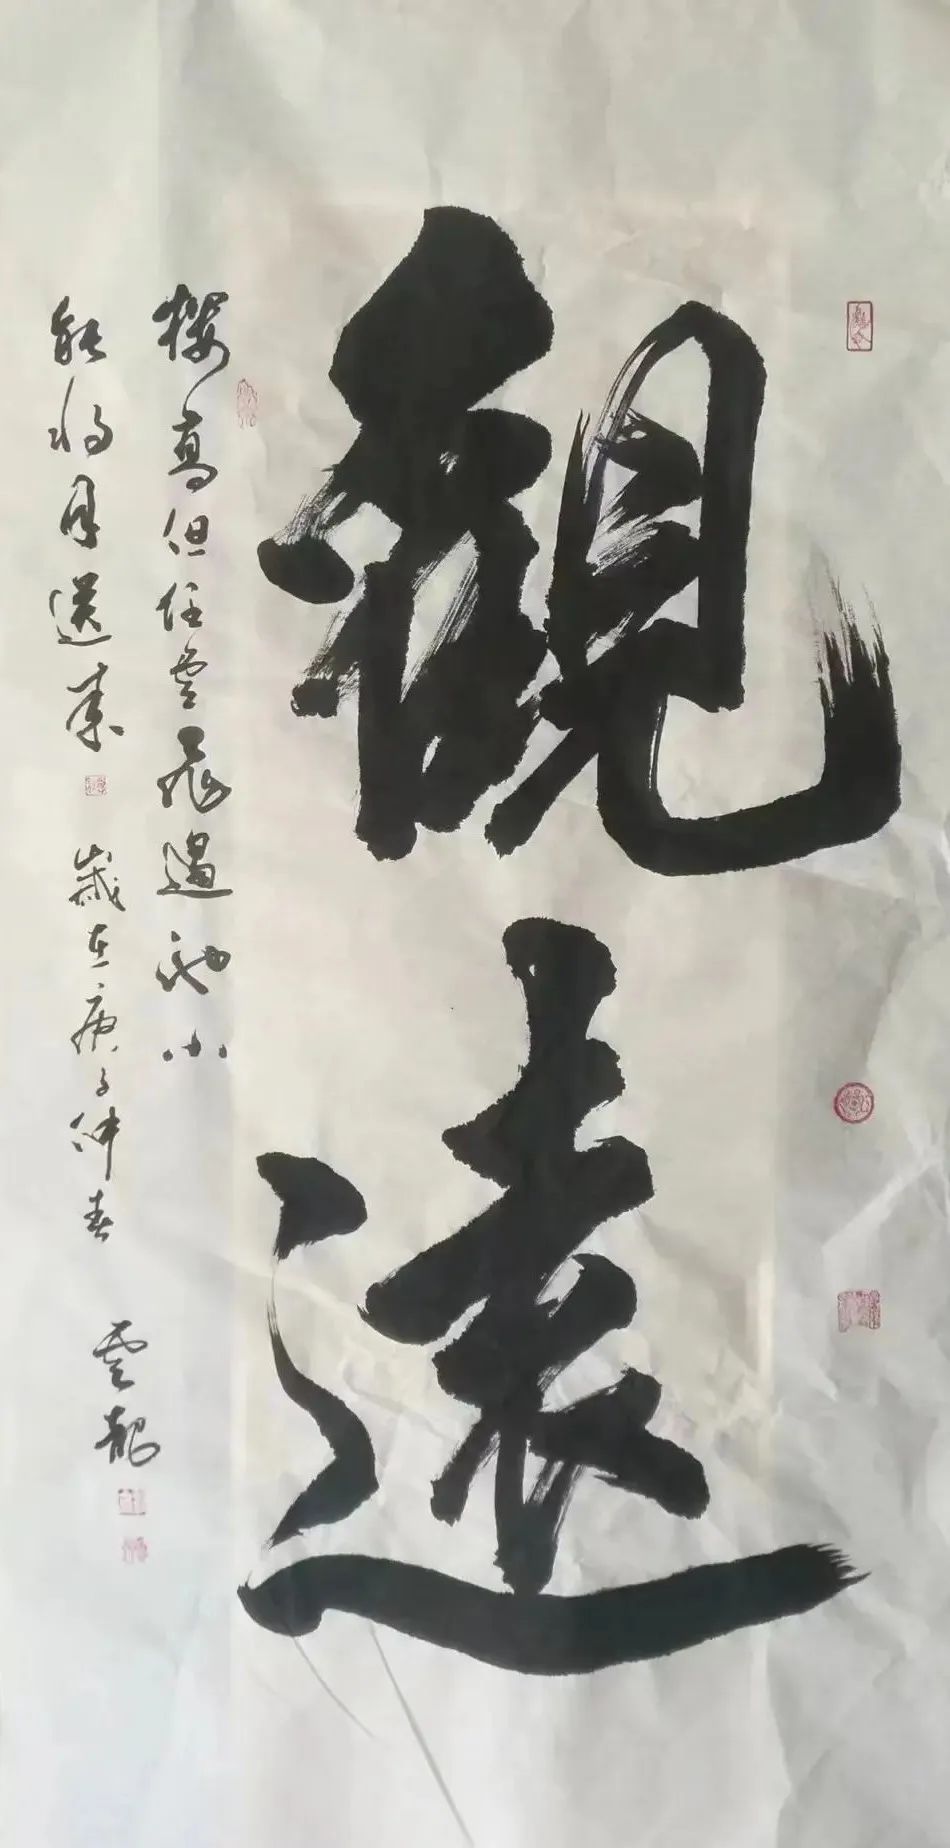 觀遠
樓高但任雲飛過池小
能將月送來
歲在庚子仲春
雲龍